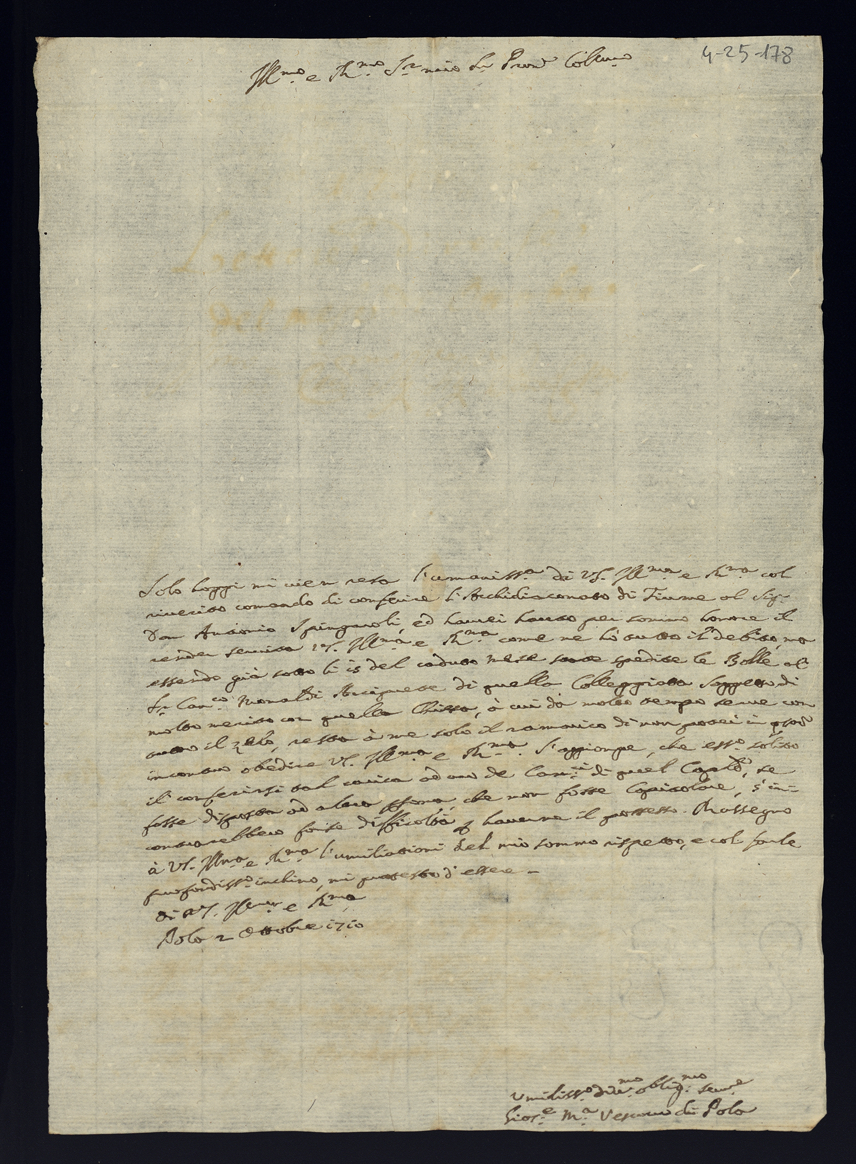 4-25-178
Ill.mo e R.mo S.r mio S.r Pron Col.mo
Solo hoggi mi vien resa l'umaniss.a di V.S. Ill.ma e R.ma col
riverito comando di conferire l'Archidiaconato di Fiume al Sig.r
Don Antonio Spingaroli, ed haurei hauto per sommo honore il
render servita V.S. Ill.ma e R.ma come ne hò tutto il debito, ma
essendo già sotto li 15 del caduto mese state spedite le Bolle al
S.r Can.co Monaldi Arciprete di quella Colleggiata Soggetto di
molto merito con quella Chiesa, à cui da molto tempo serve con
tutto il zelo, resta à me solo il ramarico di non poter in q.sto
incontro obedire V.S. Ill.ma e R.ma. S'aggionge, che ess.o solito
il conferirsi tal carica ad uno de Can.ci di quel Cap.lo, se
fosse disposta ad altro, che non fosse Capitolare, s'in-
contrarebbero forse difficoltà p haverne il possesso. Rassegno
à V.S. Ill.ma e R.ma l'umiliationi del mio sommo rispetto, e col
profondiss.o inchino, mi protesto d'essere -
Di V.S. Ill.ma e R.ma
Pola 2 Ottobre 1710
Umiliss.o div.mo oblig.mo serv.e
Gios.e M.a Vescovo di Pola